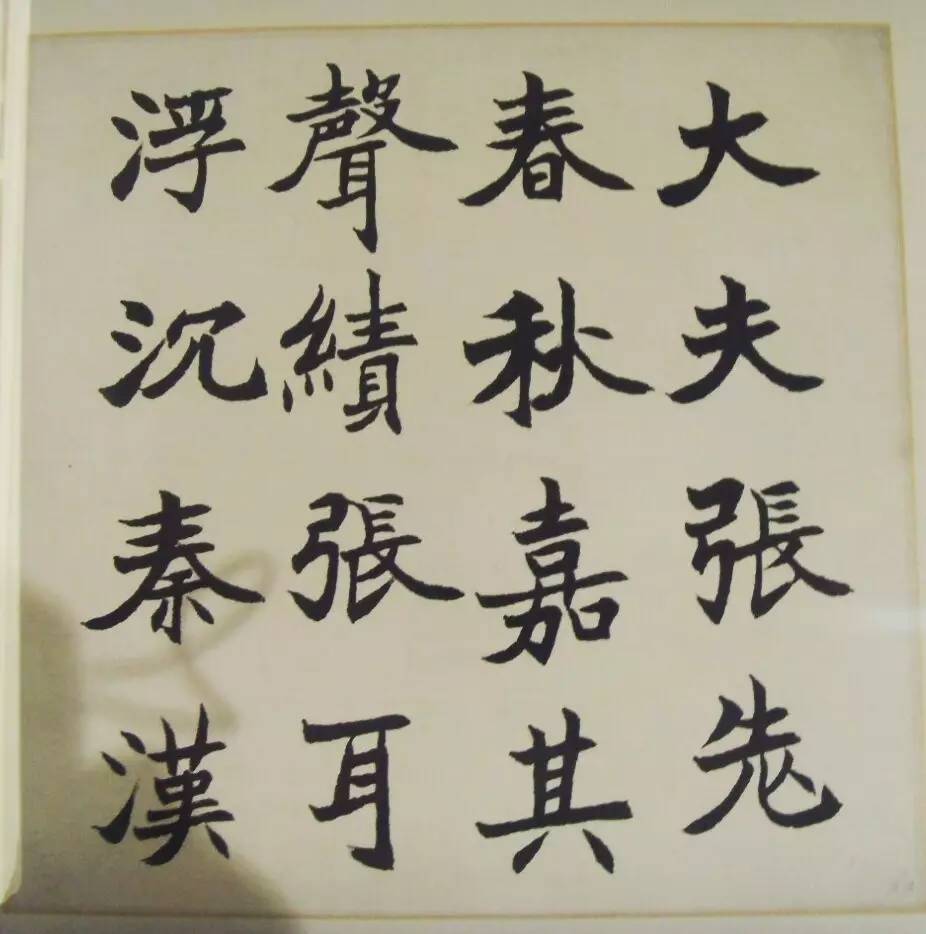 大夫張老
春秋嘉其
聲績張耳
浮沉秦漢